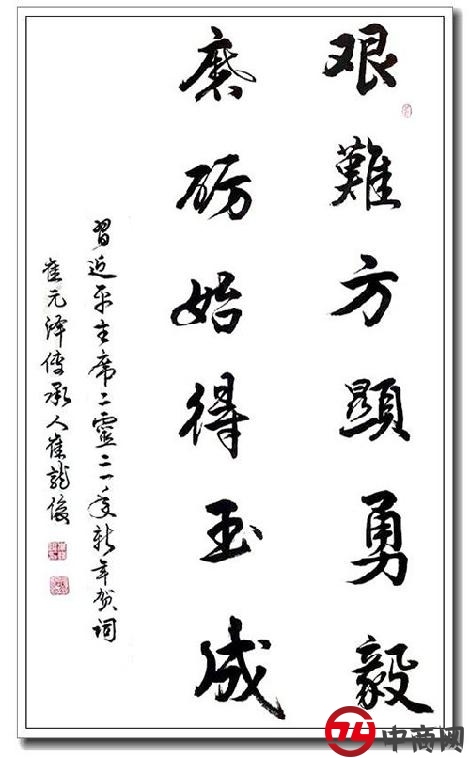 艰難方顯勇毅
磨砺始得玉成
習近平主席二零二一年新年贺詞
崔元泽傳承人崔龍俊
中商网